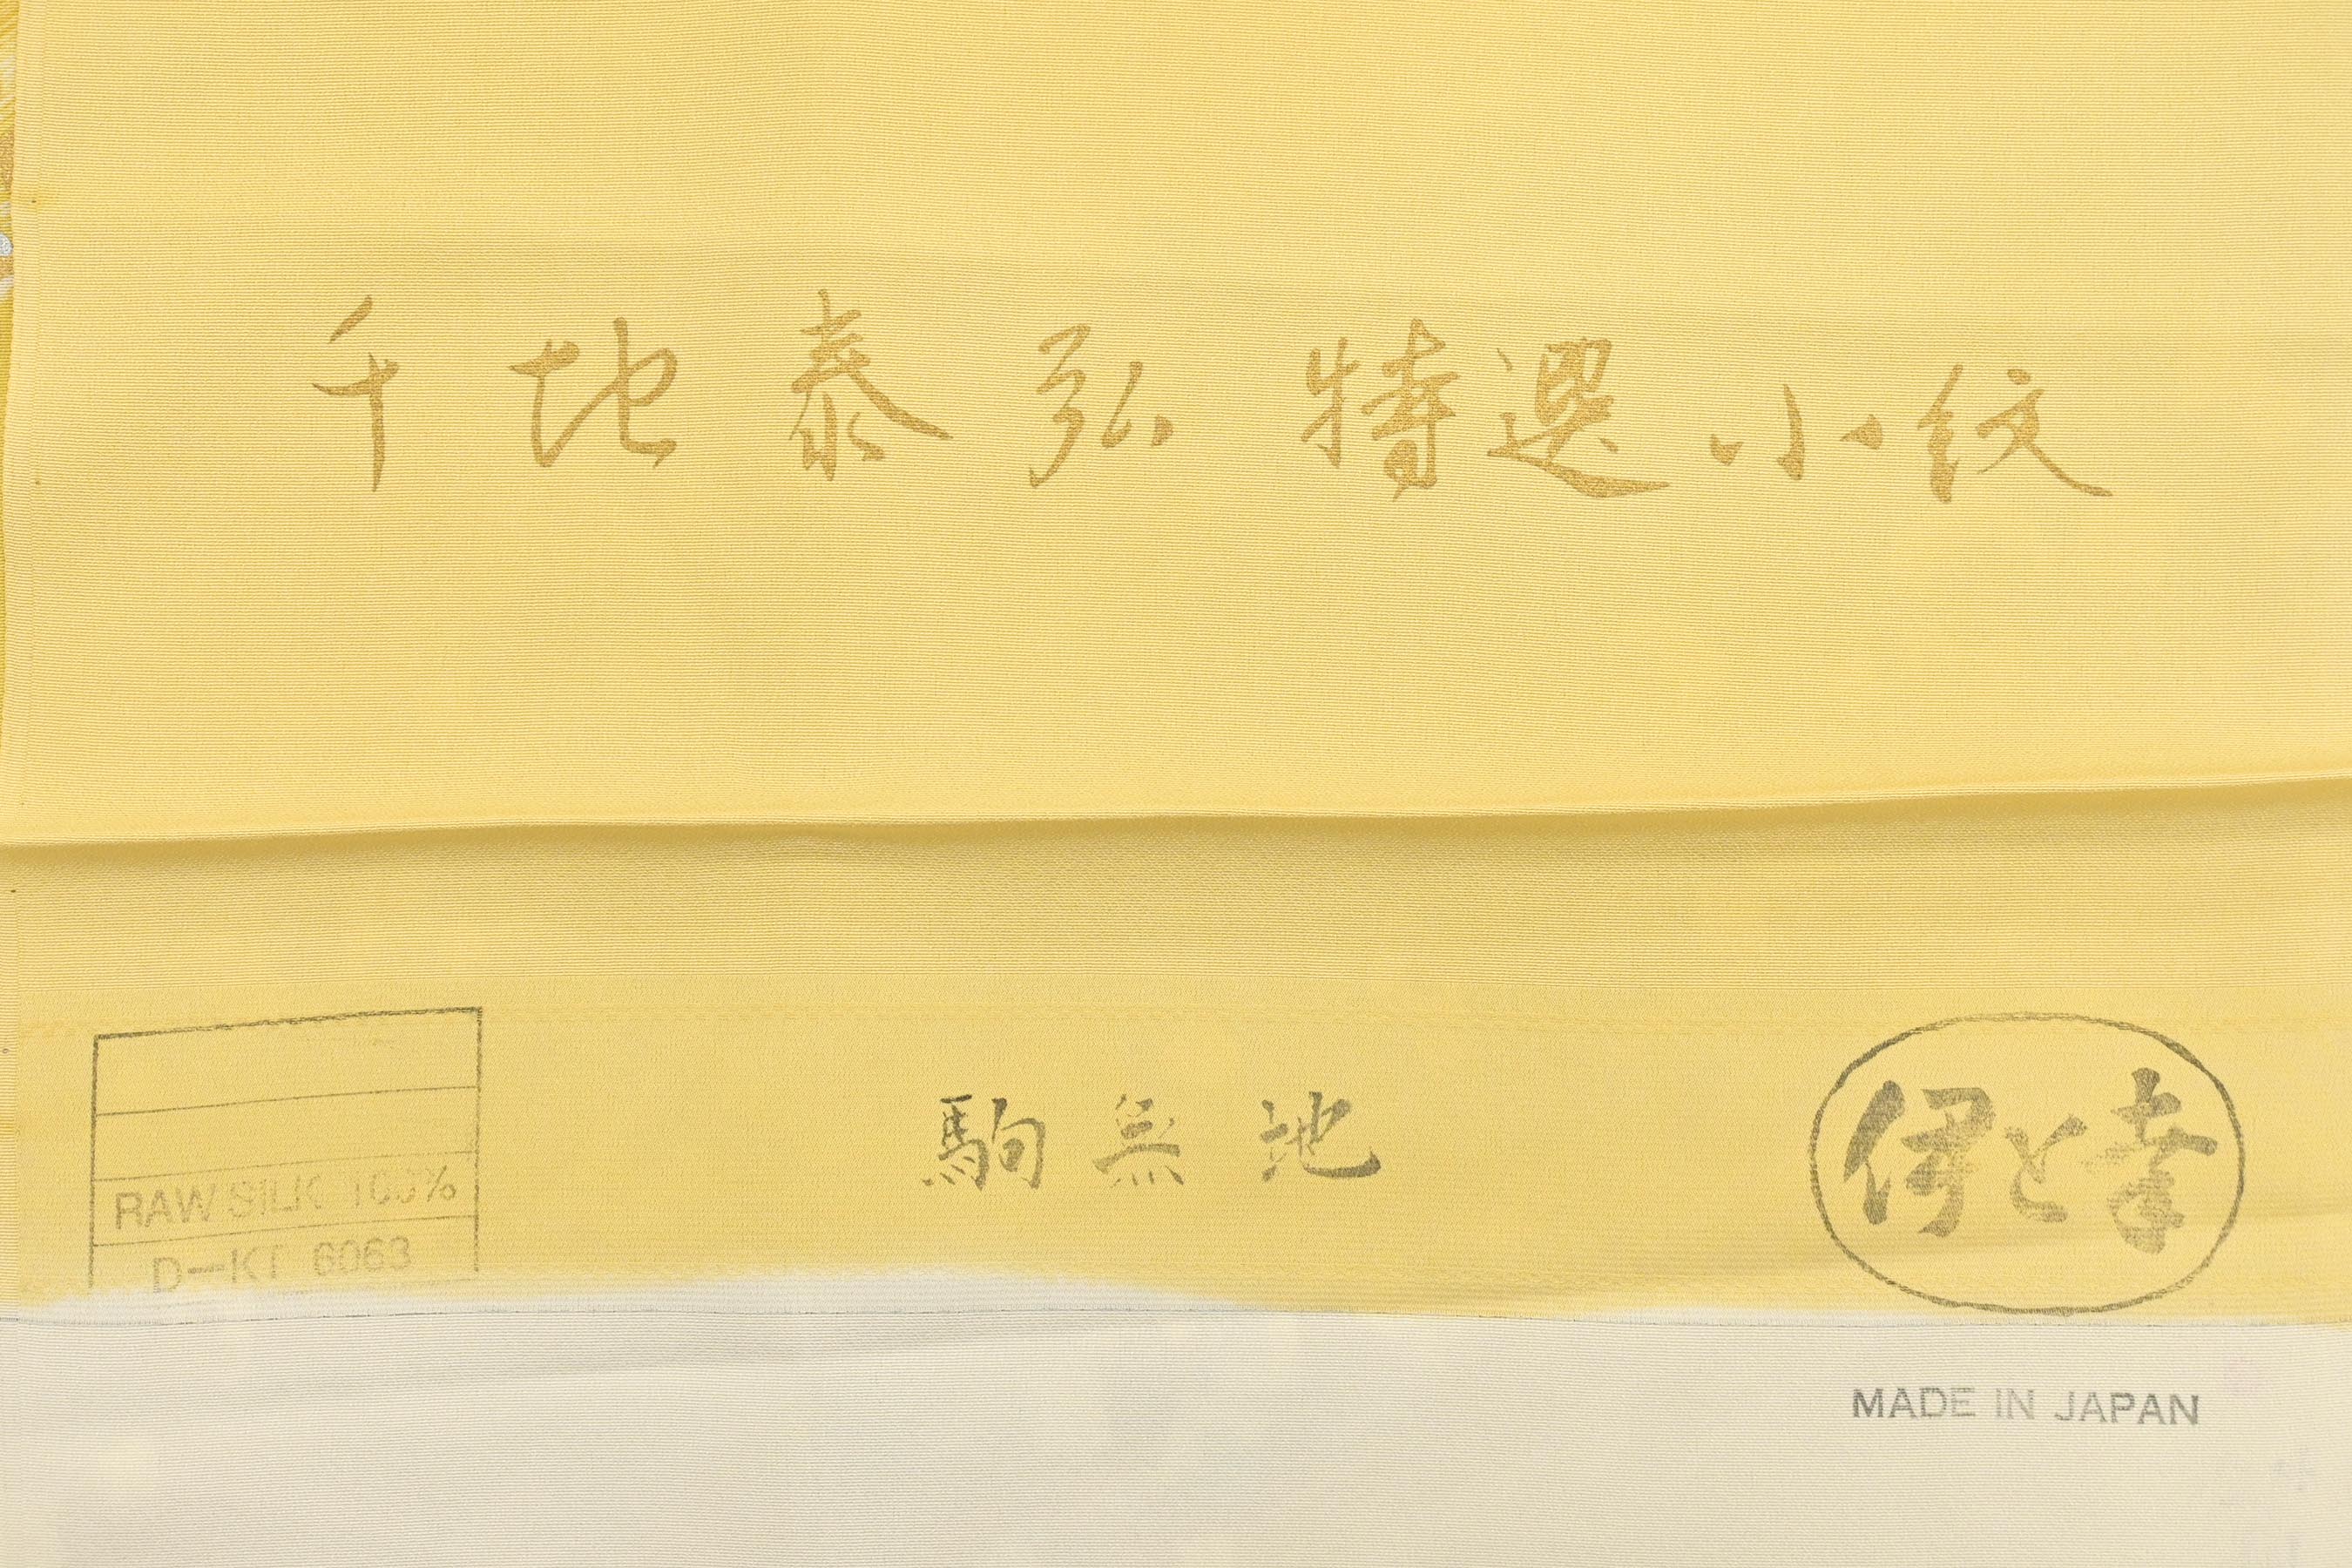 千地泰弘 特選小紋
RAW SILK 100%
D-KT 6063
駒無地
伊と幸
MADE IN JAPAN